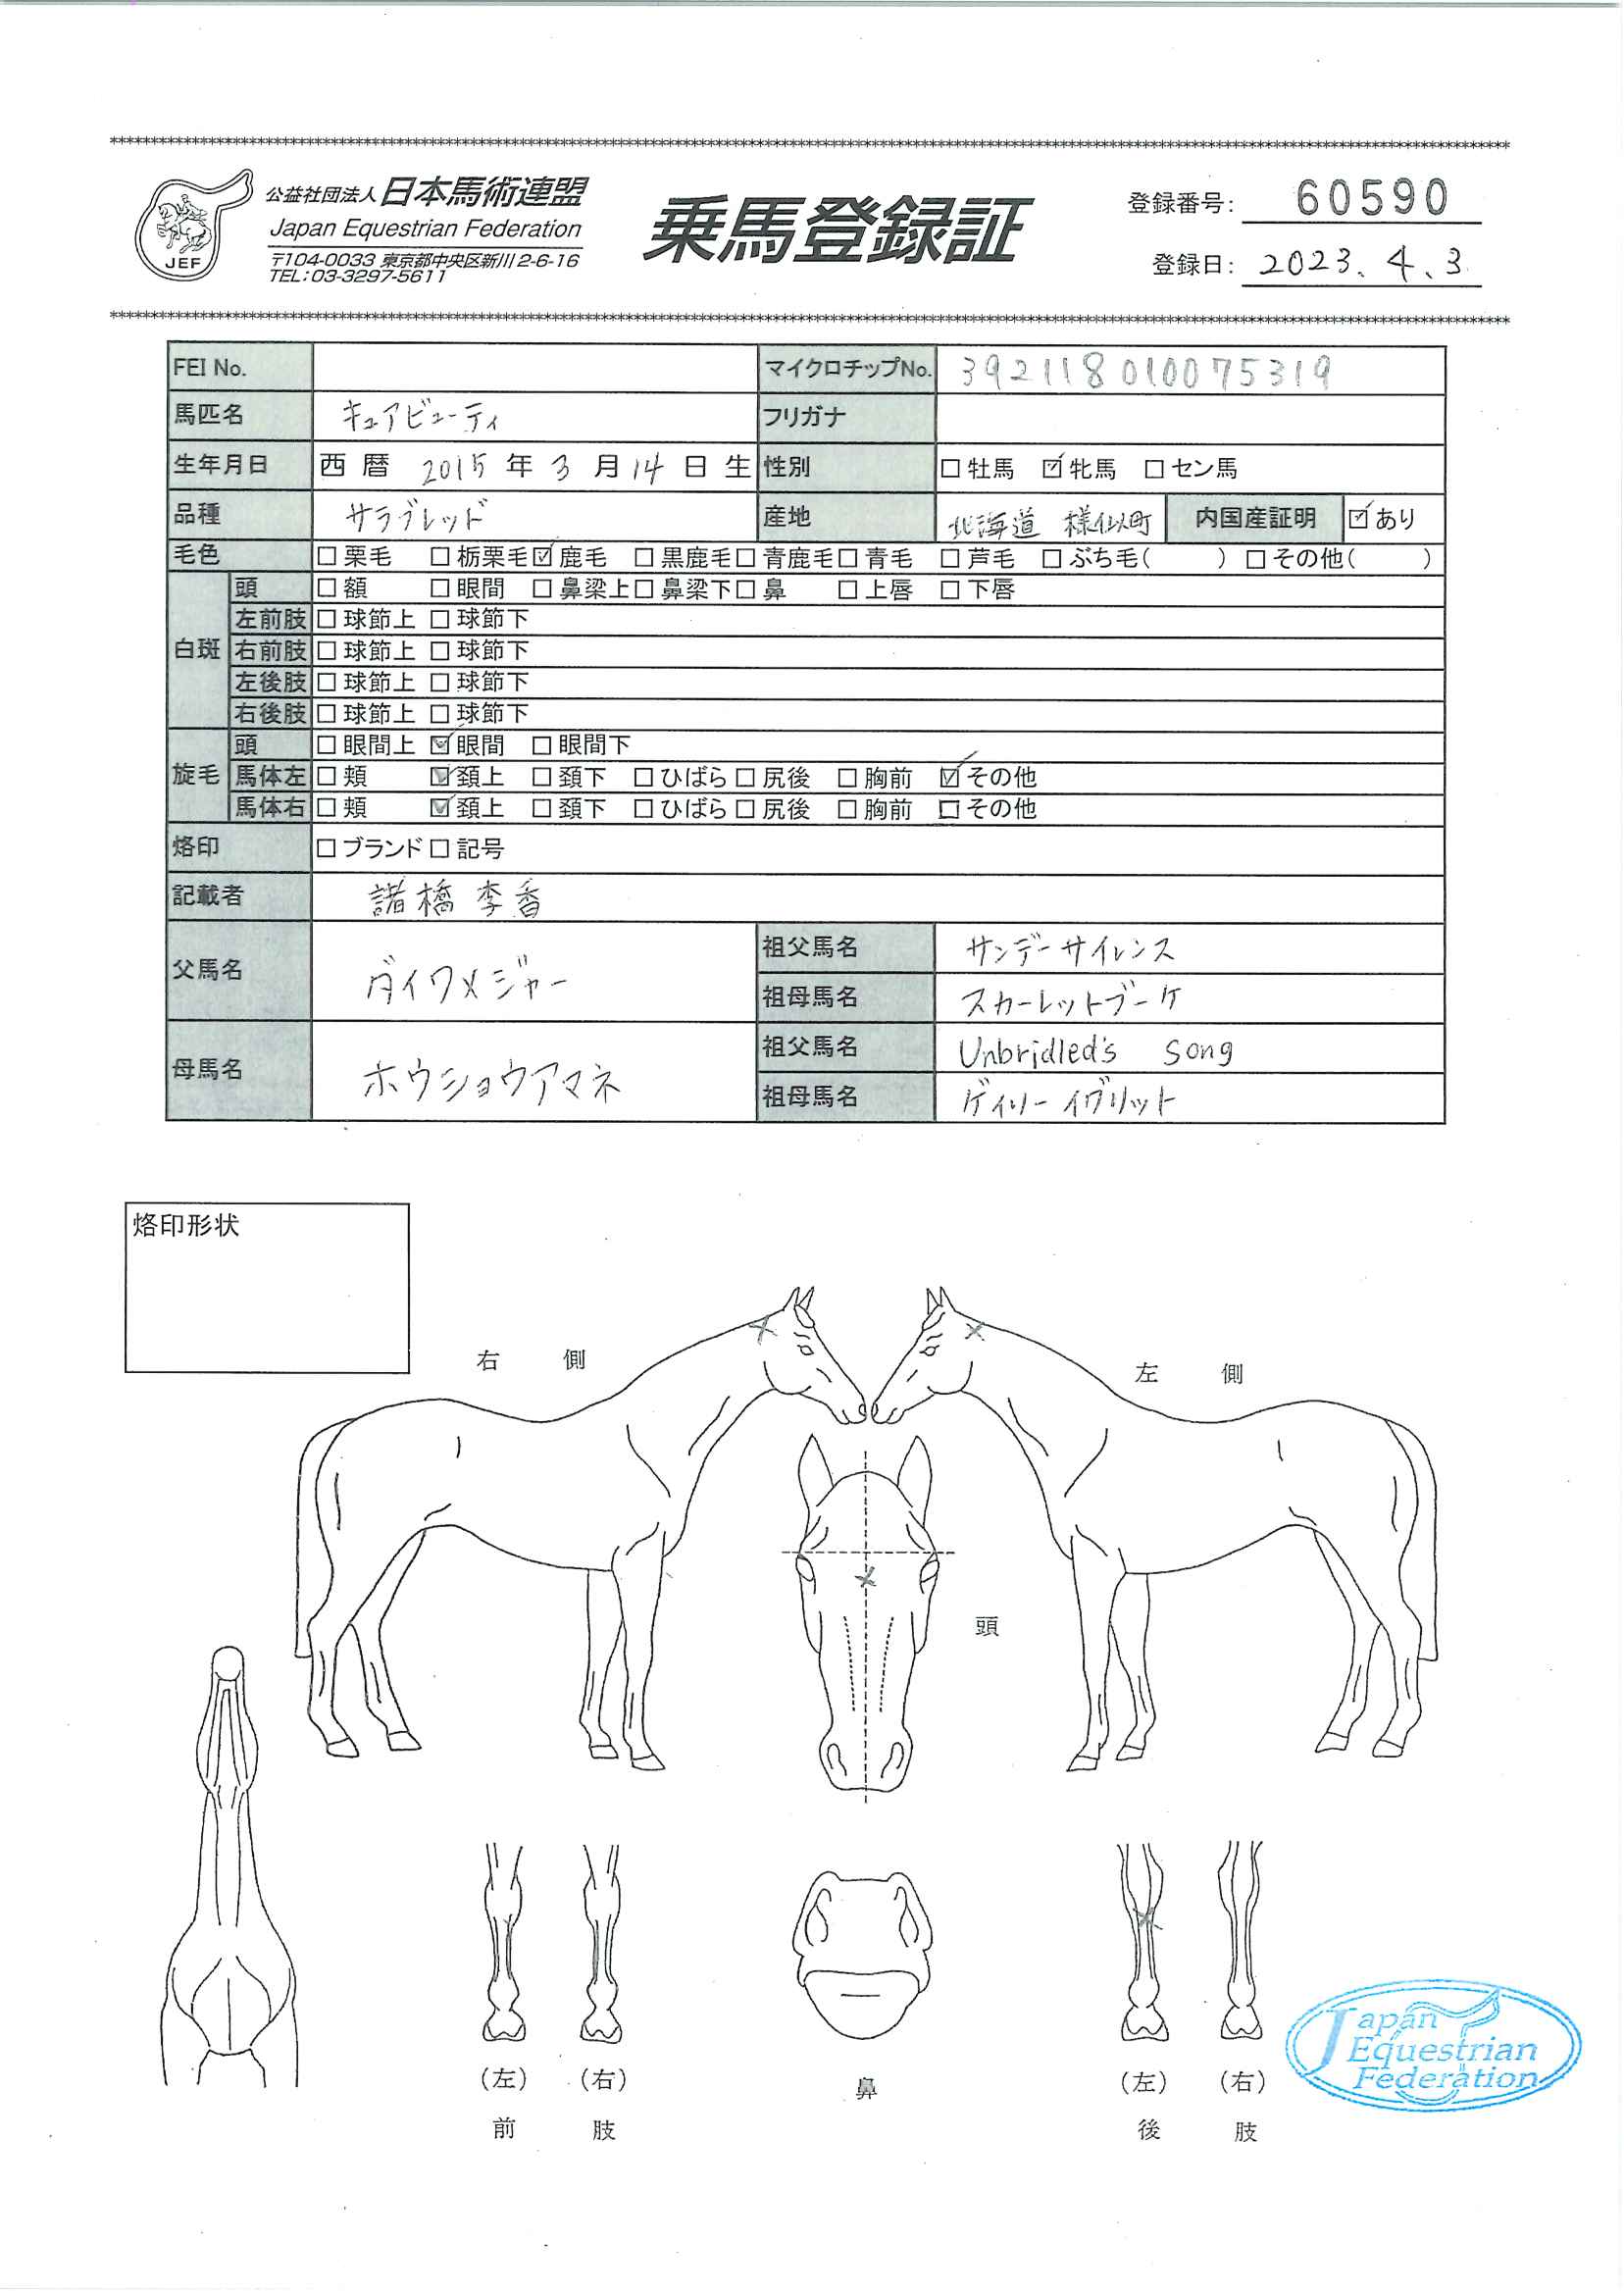 公益社団法人 日本馬術連盟
Japan Equestrian Federation
〒104-0033 東京都中央区新川2-6-16
TEL:03-3297-5611
JEF
乗馬登録証
登録番号: 60590
登録日: 2023.4.3
FEI No. マイクロチップNo. 392118010075319
馬匹名 キュアビューティ フリガナ
生年月日 西暦 2015年3月14日生 性別 □牡馬 ☑牝馬 □セン馬
品種 サラブレッド 産地 北海道 様似町 内国産証明 ☑あり
毛色 □栗毛 □栃栗毛 ☑鹿毛 □黒鹿毛 □青鹿毛 □青毛 □芦毛 □ぶち毛( ) □その他( )
白斑 頭 □額 □眼間 □鼻梁上 □鼻梁下 □鼻 □上唇 □下唇
左前肢 □球節上 □球節下
右前肢 □球節上 □球節下
左後肢 □球節上 □球節下
右後肢 □球節上 □球節下
旋毛 頭 □眼間上 ☑眼間 □眼間下
馬体左 □頬 ☑頚上 □頚下 □ひばら □尻後 □胸前 ☑その他
馬体右 □頬 ☑頚上 □頚下 □ひばら □尻後 □胸前 □その他
烙印 □ブランド □記号
記載者 諸橋 李香
父馬名 ダイワメジャー 祖父馬名 サンデーサイレンス
祖母馬名 スカーレットブーケ
母馬名 ホウショウアマネ 祖父馬名 Unbridled's Song
祖母馬名 ゲイリーイグリット
烙印形状
右側
左側
頭
(左) (右)
前 肢
鼻
(左) (右)
後 肢
Japan
Equestrian
Federation